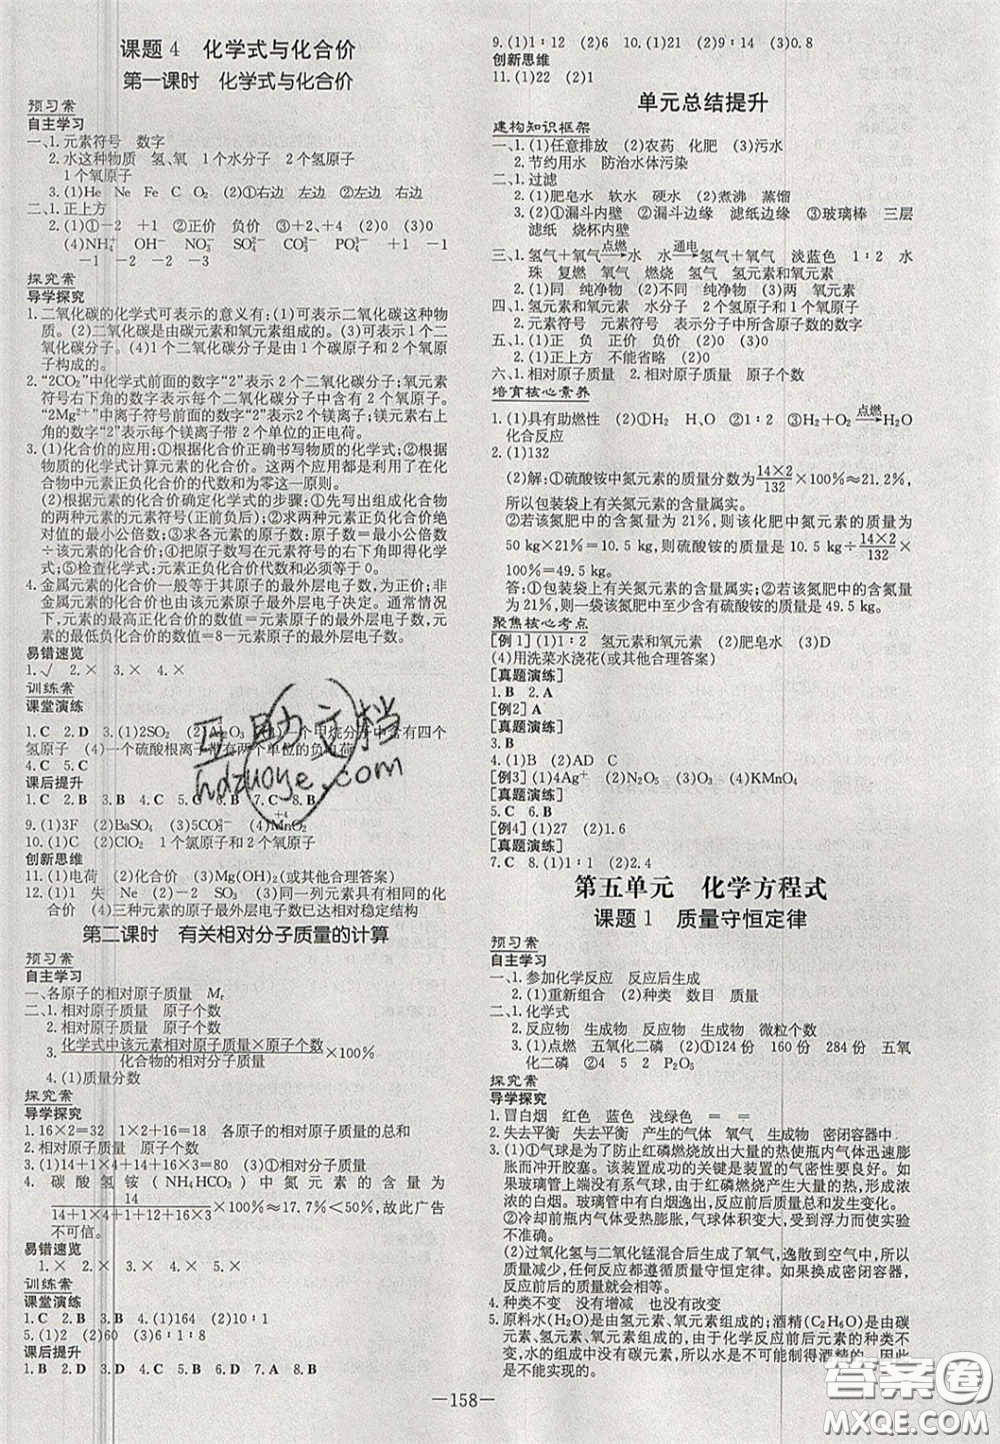 课题4 化学式与化合价
第一课时 化学式与化合价
预习案
自主学习
一、1.元素符号 数字
2.水这种物质 氢、氧 1个水分子 2个氢原子
1个氧原子
3.(1)He Ne Fe C O₂ (2)①右边 左边 ②左边 右边
二、1.正上方
2.(1)①-2 +1 ②正价 负价 ③+2 (2)0 (3)0
(4)NH₄⁺ OH⁻ NO₃⁻ SO₄²⁻ CO₃²⁻ PO₄³⁻ +1 -1
-1 -2 -2 -3
探究案
导学探究
1.二氧化碳的化学式可表示的意义有:(1)可表示二氧化碳这种物
质。(2)二氧化碳是由碳元素和氧元素组成的。(3)可表示1个二
氧化碳分子。(4)1个二氧化碳分子是由1个碳原子和2个氧原
子构成的。
2.“2CO₂”中化学式前面的数字“2”表示2个二氧化碳分子;氧元素
符号右下角的数字表示每个二氧化碳分子中含有2个氧原子。
“2Mg²⁺”中离子符号前面的数字“2”表示2个镁离子;镁元素右上
角的数字表示每个镁离子带2个单位的正电荷。
3.(1)化合价的应用:①根据化合价正确书写物质的化学式;②根据
物质的化学式计算元素的化合价。这两个应用都是利用了在化
合物中元素正负化合价的代数和为零这一原则。
(2)根据元素的化合价确定化学式的步骤:①先写出组成化合物
的两种元素的元素符号(正前负后);②求两种元素正负化合价绝
对值的最小公倍数;③求各元素的原子数:原子数=最小公倍数
÷该元素的化合价;④把原子数写在元素符号的右下角即得化学
式;⑤检查化学式;元素正负化合价代数和必须等于0。
4.金属元素的化合价一般等于其原子的最外层电子数,为正价;非
金属元素的化合价也由该元素原子最外层电子决定。通常情况
下,元素的最高正化合价的数值=元素原子的最外层电子数,元
素的最低负化合价的数值=8-元素原子的最外层电子数。
易错速览
1.√ 2.× 3.× 4.×
训练案
课堂演练
1.C 2.D 3.(1)2SO₂ (2)Al₂O₃ (3)一个甲烷分子中含有四个
氢原子 (4)一个硫酸根离子带有两个单位的负电荷
4.C 5.C
课后提升
1.C 2.B 3.B 4.C 5.B 6.B 7.C 8.B
9.(1)3F (2)BaSO₄ (3)5CO₃²⁻ (4)+4MnO₂
10.(1)C (2)ClO₂ 1个氯原子和2个氧原子
创新思维
11.(1)电荷 (2)化合价 (3)Mg(OH)₂(或其他合理答案)
12.(1)1 失 Ne (2)-2 SO₃ (3)同一列元素具有相同的化
合价 (4)三种元素的原子最外层电子数已达相对稳定结构
第二课时 有关相对分子质量的计算
预习案
自主学习
一、各原子的相对原子质量 Mᵣ
二、1.相对原子质量 原子个数
2.相对原子质量 原子个数
3.化学式中该元素相对原子质量×原子个数/化合物的相对分子质量×100%
4.(1)质量分数
探究案
导学探究
1.16×2=32 1×2+16=18 各原子的相对原子质量的总和
2.相对原子质量 原子个数
3.(1)14+1×4 14+1×4 (2)相对分子质量
4.碳酸氢铵(NH₄HCO₃)中氮元素的含量为
14/14+1×4+1+12+16×3×100%≈17.7%<50%,故此广告
不可信。
易错速览
1.× 2.× 3.× 4.× 5.×
训练案
课堂演练
1.C 2.B 3.B 4.(1)164 (2)10∶1
5.(1)2 (2)60 (3)6∶1∶8
课后提升
1.B 2.D 3.D 4.B 5.C 6.B 7.A 8.B
9.(1)1∶12 (2)6 10.(1)21 (2)9∶14 (3)0.8
创新思维
11.(1)22 (2)1
单元总结提升
建构知识框架
一、1.(1)任意排放 (2)农药 化肥 (3)污水
2.节约用水 防治水体污染
二、1.过滤
2.(1)肥皂水 软水 硬水 (2)煮沸 蒸馏
(3)①漏斗内壁 ②漏斗边缘 滤纸边缘 ③玻璃棒 三层
滤纸 烧杯内壁
三、1.氢气+氧气 点燃→ 水 水 通电→ 氢气+氧气 淡蓝色 1∶2 水
珠 复燃 氧气 燃烧 氢气 氢元素和氧元素
2.(1)同 纯净物 (2)不同 纯净物 (3)两 氧
四、1.氢元素和氧元素 水分子 2个氢原子和1个氧原子
2.元素符号 元素符号 表示分子中所含原子的数字
五、1.(1)正 负 正价 负价 (2)0
2.(1)正上方 不能省略 (2)-2
六、1.相对原子质量 2.相对原子质量 原子个数
培育核心素养
1.(1)具有助燃性 (2)①H₂ H、O ②1∶2 ③H₂+O₂ 点燃→ H₂O
化合反应
2.(1)132
(2)解:①硫酸铵中氮元素的质量分数为14×2/132×100%≈21.2%,
所以包装袋上有关氮元素的含量属实。
②若该氮肥中的含氮量为21%,则该化肥中氮元素的质量为
50 kg×21%=10.5 kg,则硫酸铵的质量是10.5 kg÷14×2/132×
100%=49.5 kg。
答:①包装袋上有关氮元素的含量属实;②若该氮肥中的含氮量
为21%,则一袋该氮肥中至少含有硫酸铵的质量是49.5 kg。
聚焦核心考点
[例1](1)1∶2 氢元素和氧元素 (2)肥皂水 (3)D
(4)用洗菜水浇花(或其他合理答案)
[真题演练]
1.B 2.A
[例2]A
[真题演练]
3.B
4.(1)B (2)AD C
[例3](1)4Ag⁺ (2)N₂O₅ (3)O₃ (4)KMnO₄
[真题演练]
5.C 6.B
[例4](1)27 (2)1.6
[真题演练]
7.C 8.(1)1∶1 (2)2.4
第五单元 化学方程式
课题1 质量守恒定律
预习案
自主学习
一、1.参加化学反应 反应后生成
2.(1)重新组合 (2)种类 数目 质量
二、1.化学式
2.反应物 生成物 反应物 生成物 微粒个数
3.(1)点燃 五氧化二磷 (2)①124份 160份 284份 五氧
化二磷 ②4P 5O₂ 2P₂O₅
探究案
导学探究
1.冒白烟 红色 蓝色 浅绿色 = =
2.失去平衡 失去平衡 产生的气体 氧气 生成物 密闭容器中
3.(1)①气球是为了防止红磷燃烧放出大量的热使瓶内气体迅速膨
胀而冲开胶塞。该装置成功的关键是装置的密闭性要好。如
果玻璃管上端没有系气球,由于红磷燃烧产生热量使装置内气体膨
胀,造成玻璃管中有白烟逸出,反应前后物质的质量总和发生变化。
②冷却前瓶内气体受热膨胀,气球体积变大,受到浮力而使实验
不准确。
(2)过氧化氢与二氧化锰混合后生成了氧气,逸散到空气中,所以
质量减少,任何反应都遵循质量守恒定律。若换成密闭容器,
反应前后的质量就会相等。
4.种类不变 没有增减 也没有改变
5.原料水(H₂O)是由氢元素、氧元素组成的;酒精(C₂H₆O)是由碳
元素、氢元素、氧元素组成的,由于化学反应前后元素的种类不变,
水的组成中没有碳元素,所以只用水不可能制得酒精的,该广告
是不能实现的。
—158—
互助文档
hdzuoye.com
答案圈
MXQE.COM